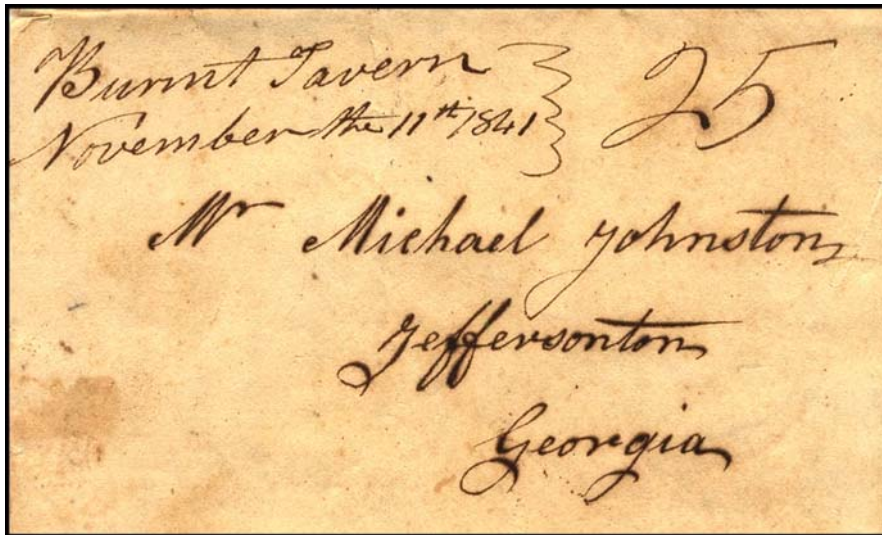 Burnt Tavern
November the 11th 1841
25
Mr Michael Johnston
Jeffersonton
Georgia